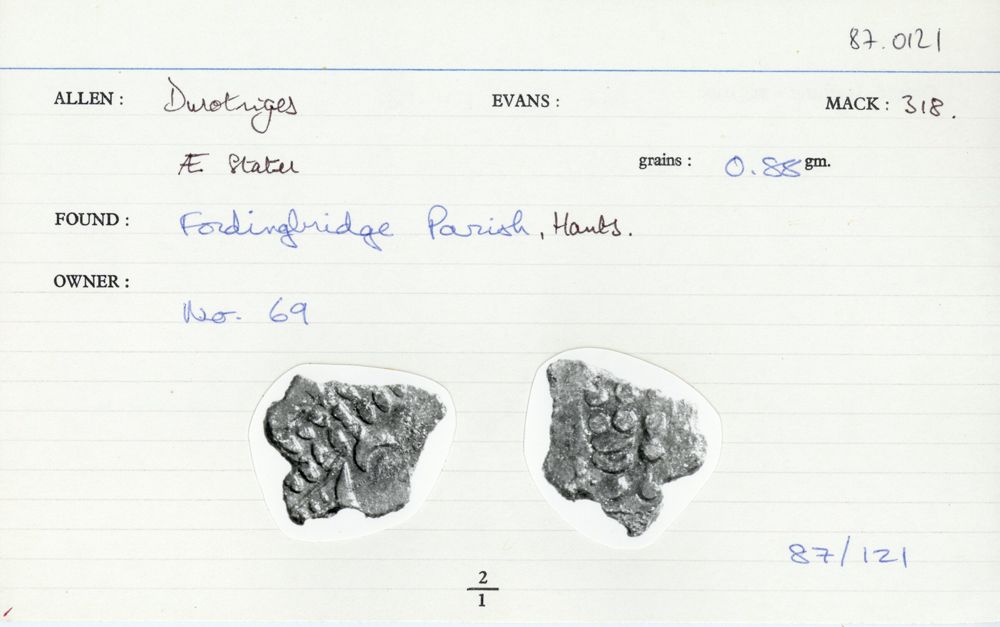 87.0121
ALLEN : Durotriges EVANS : MACK : 318.
Æ Stater grains : 0.88 gm.
FOUND : Fordingbridge Parish, Hants.
OWNER :
No. 69
87/121
2
1